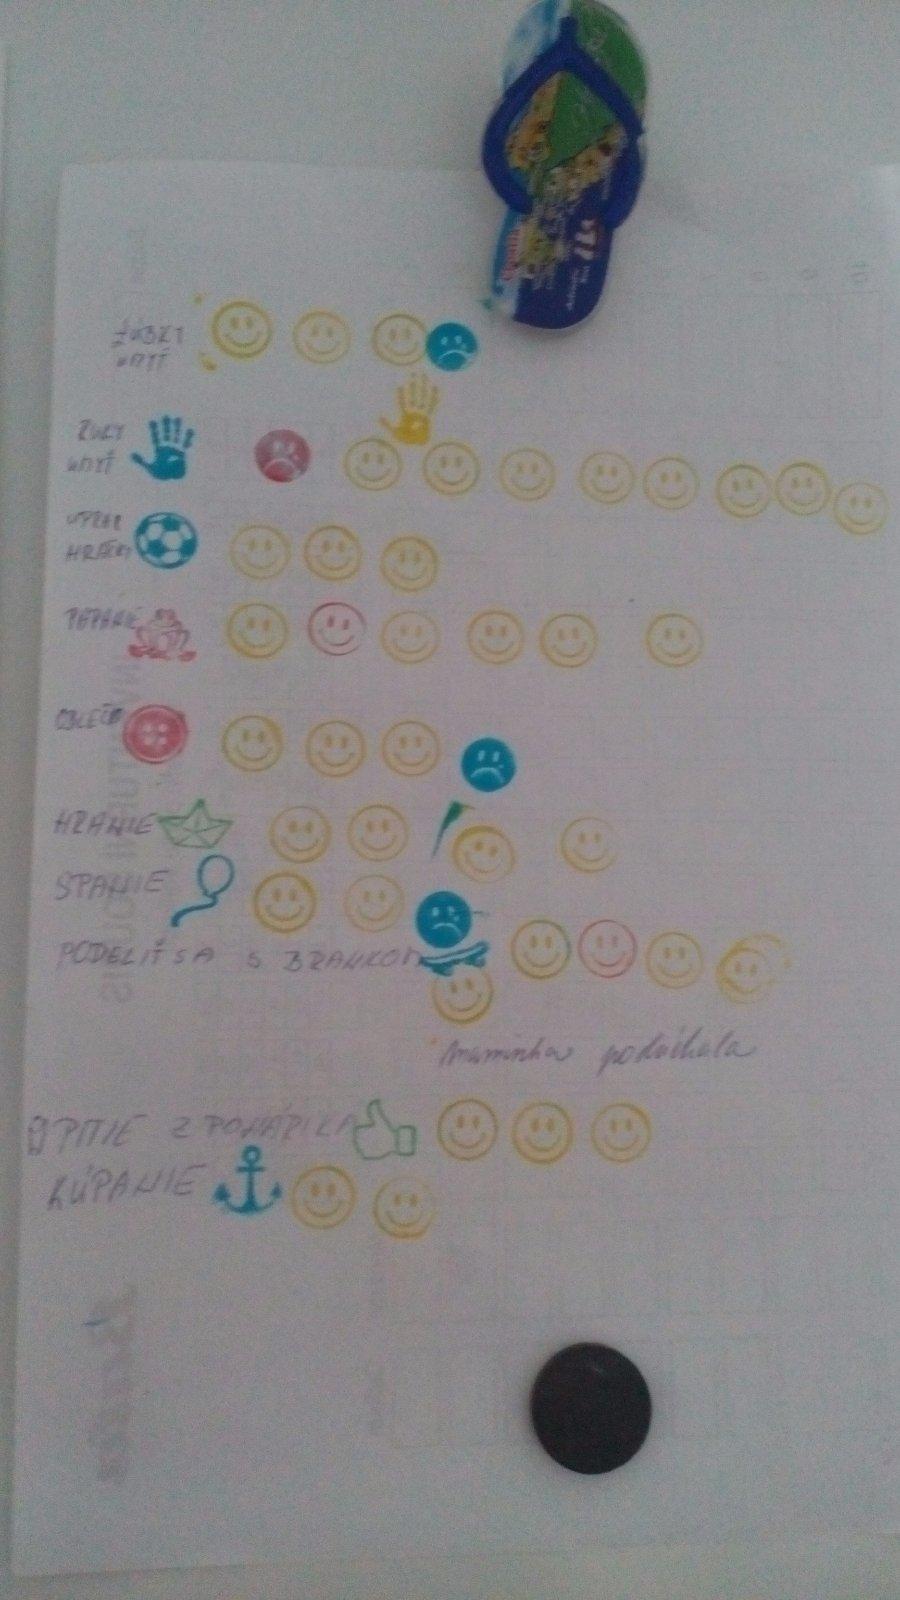 ZÚBKY
UMYŤ
RUKY
UMYŤ
UPRAŤ
HRAČKY
PAPANIE
OBLEČ
HRANIE
SPANIE
PODELIŤ SA S BRANKOM
maminka poduchala
PITIE Z POHÁRIKA
KÚPANIE